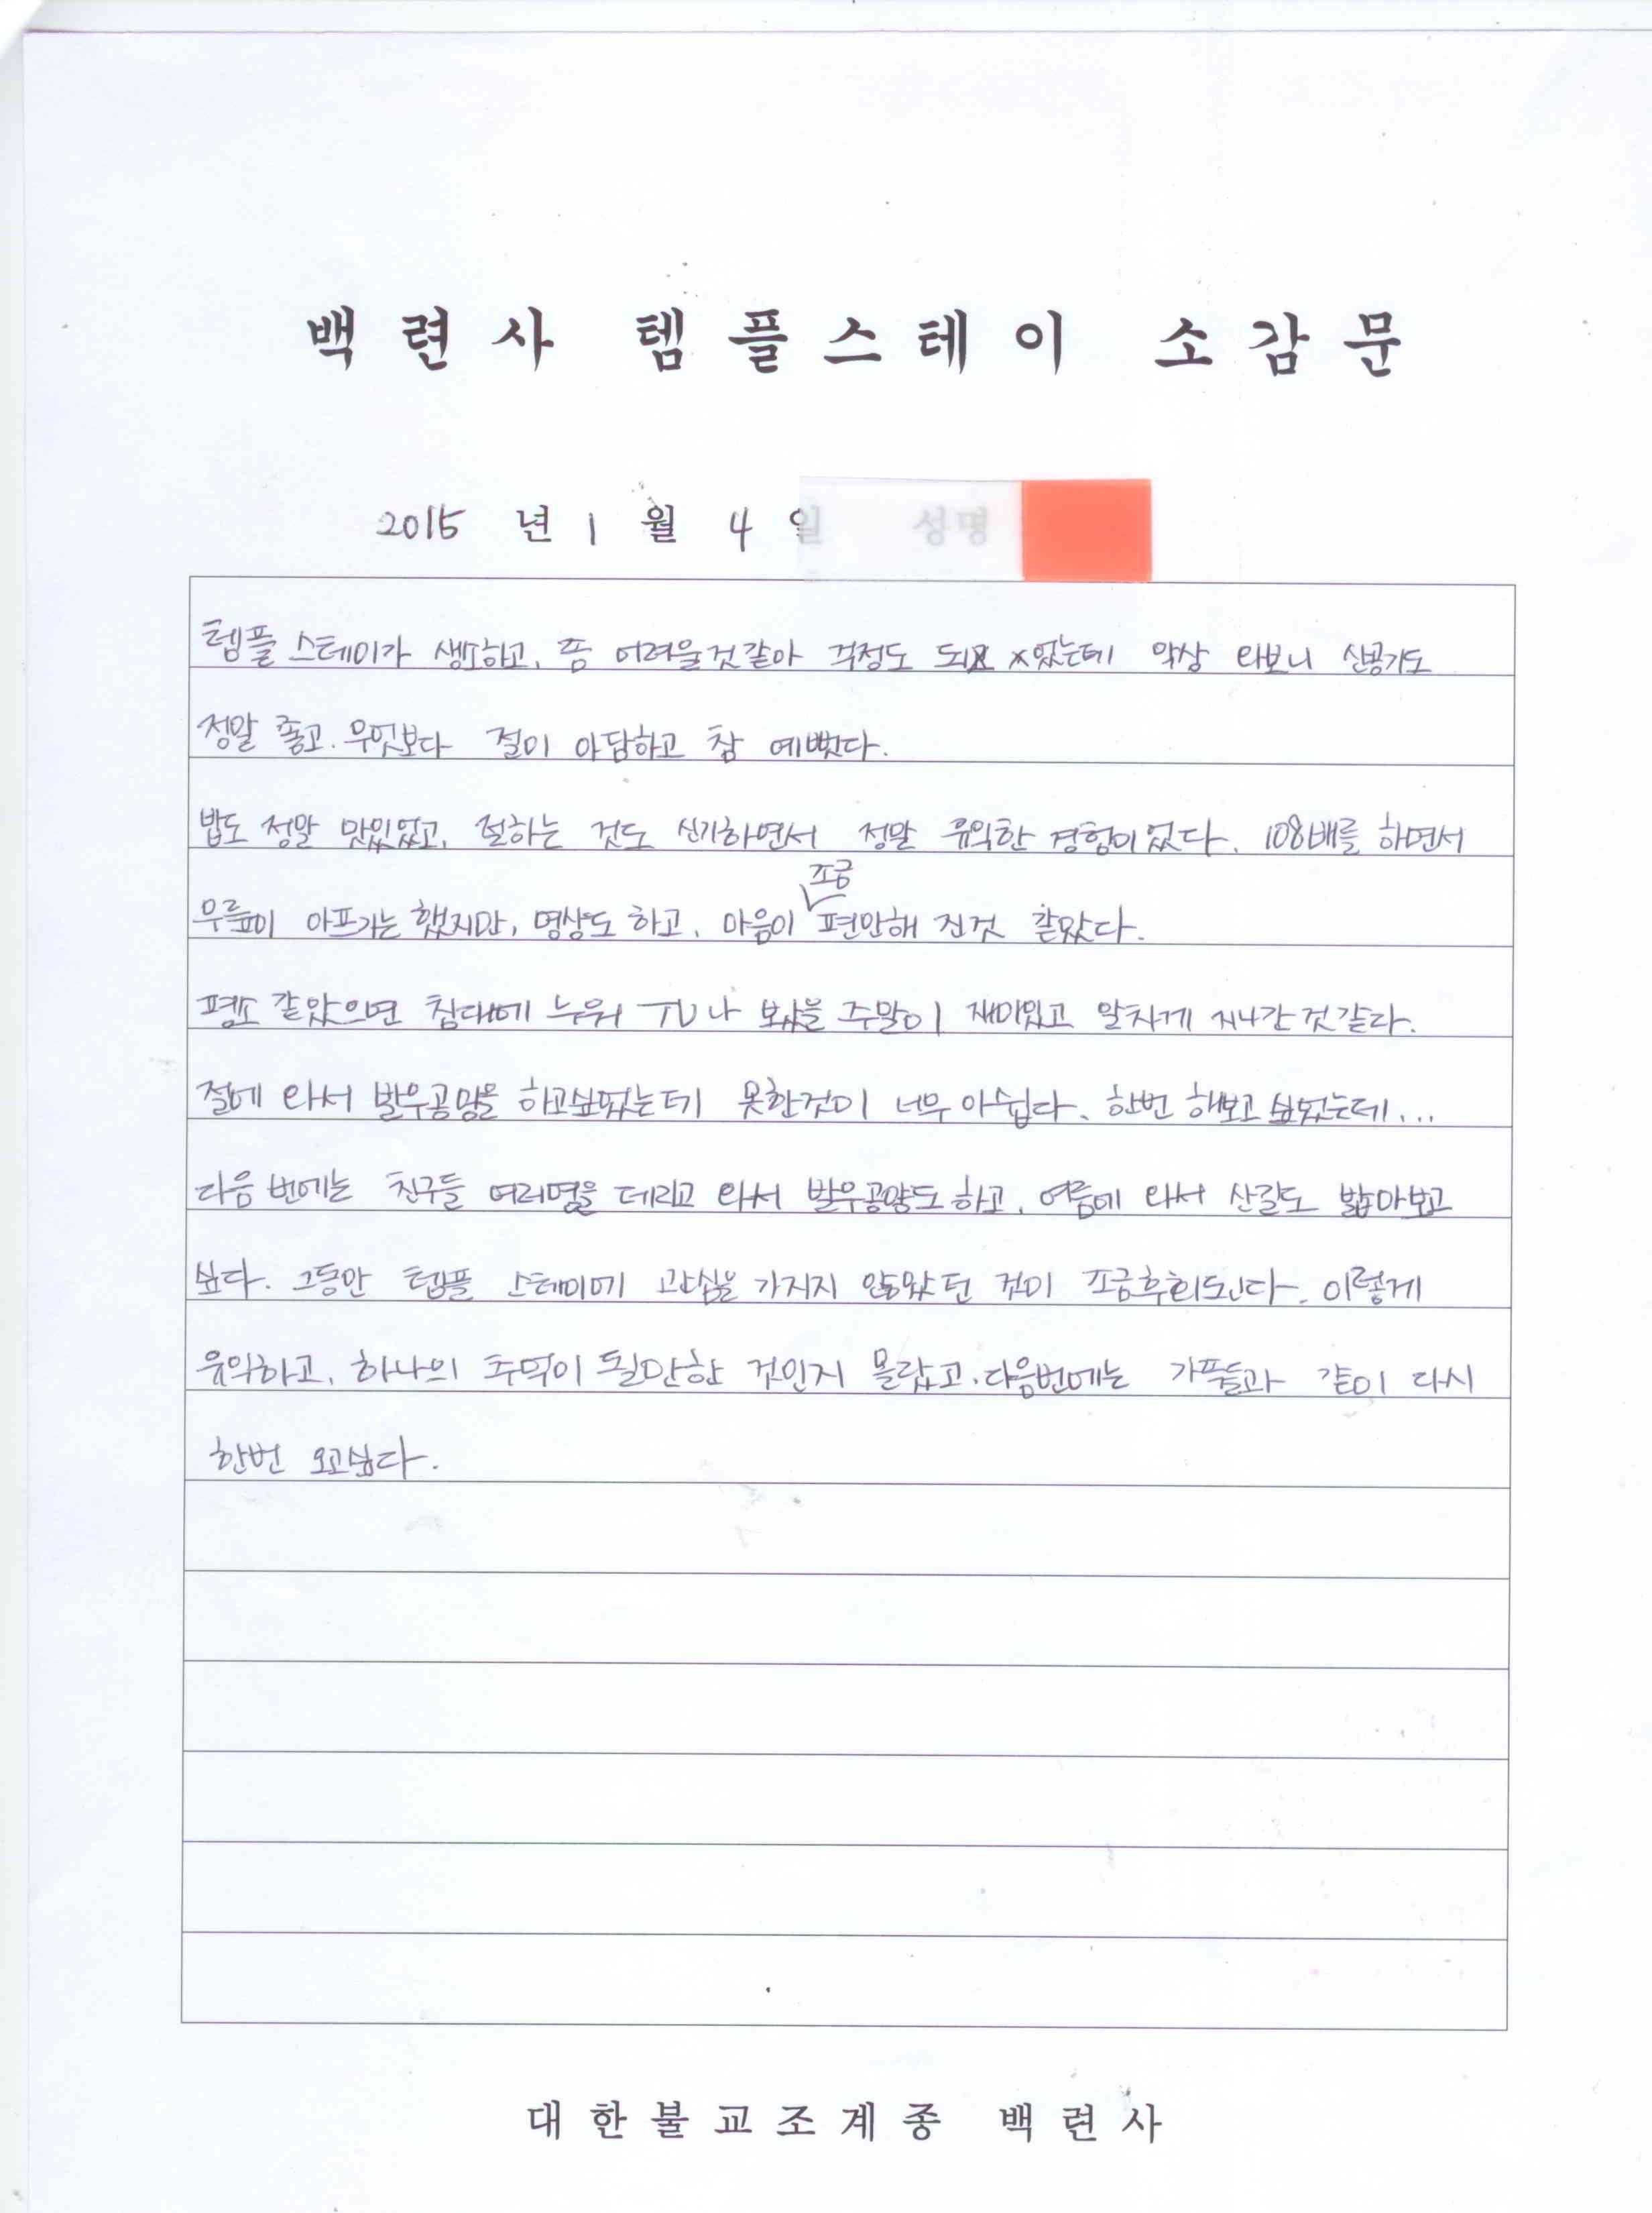 백련사 템플스테이 소감문
2015 년 1 월 4 일 성명
템플 스테이가 생소하고, 좀 어려울것같아 걱정도 되었는데 막상 와보니 산공기도
정말 좋고. 무엇보다 절이 아담하고 참 예뻤다.
밥도 정말 맛있었고, 절하는 것도 신기하면서 정말 유익한 경험이었다. 108배를 하면서
조금
무릎이 아프기는 했지만, 명상도 하고, 마음이 편안해 진것 같았다.
평소 같았으면 침대에 누워 TV나 보았을 주말이 재미있고 알차게 지나간 것 같다.
절에 와서 발우공양을 하고싶었는데 못한것이 너무 아쉽다. 한번 해보고 싶었는데...
다음 번에는 친구들 여러명을 데리고 와서 발우공양도 하고, 여름에 와서 산길도 밟아보고
싶다. 그동안 템플 스테이에 관심을 가지지 않았던 것이 조금후회된다. 이렇게
유익하고, 하나의 추억이 될만한 것인지 몰랐고. 다음번에는 가족들과 같이 다시
한번 오고싶다.
대한불교조계종 백련사